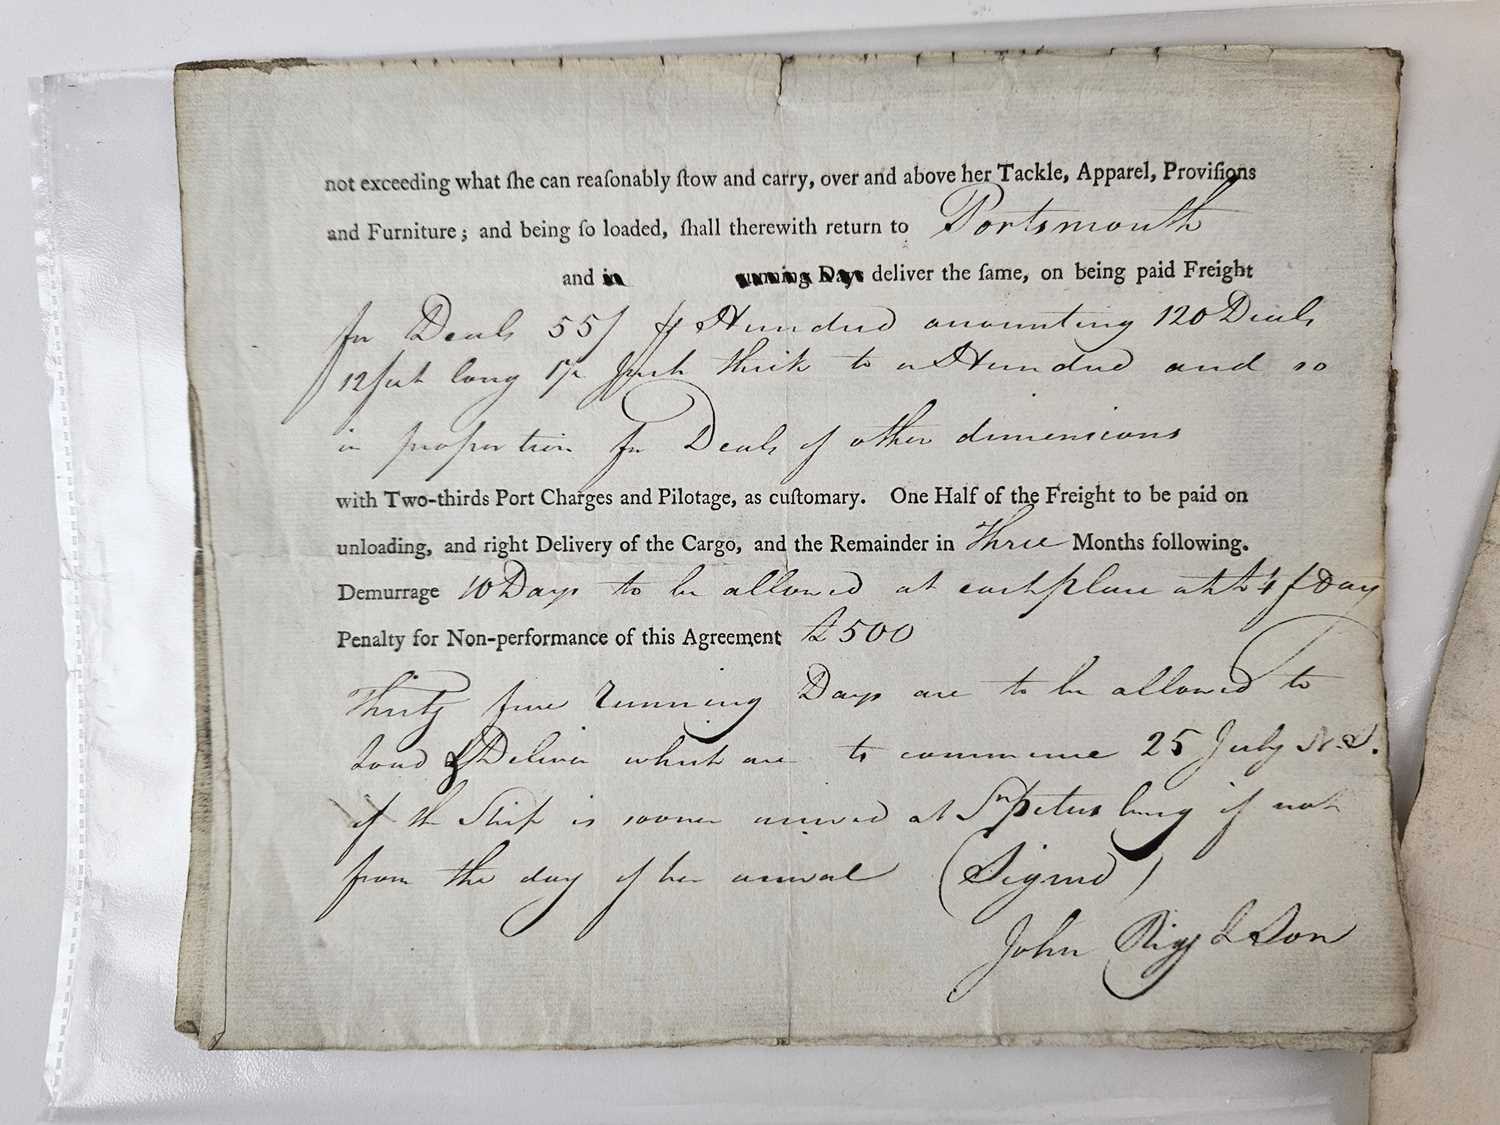 not exceeding what ſhe can reaſonably ſtow and carry, over and above her Tackle, Apparel, Proviſions
and Furniture; and being ſo loaded, ſhall therewith return to Portsmouth
and in running Days deliver the ſame, on being paid Freight
for Deals 55/ ⅌ Hundred accounting 120 Deals
12 feet long 1½ Inch thick to a Hundred and so
in proportion for Deals of other dimensions
with Two-thirds Port Charges and Pilotage, as cuſtomary. One Half of the Freight to be paid on
unloading, and right Delivery of the Cargo, and the Remainder in Three Months following.
Demurrage 10 Days to be allowed at each place at ⅌ Day
Penalty for Non-performance of this Agreement £500
Thirty five running Days are to be allowed to
Load & Deliver which are to commence 25 July N.S.
if the Ship is sooner arrived at Petersburg if not
from the day of her arrival (Signed)
John Rigg & Son